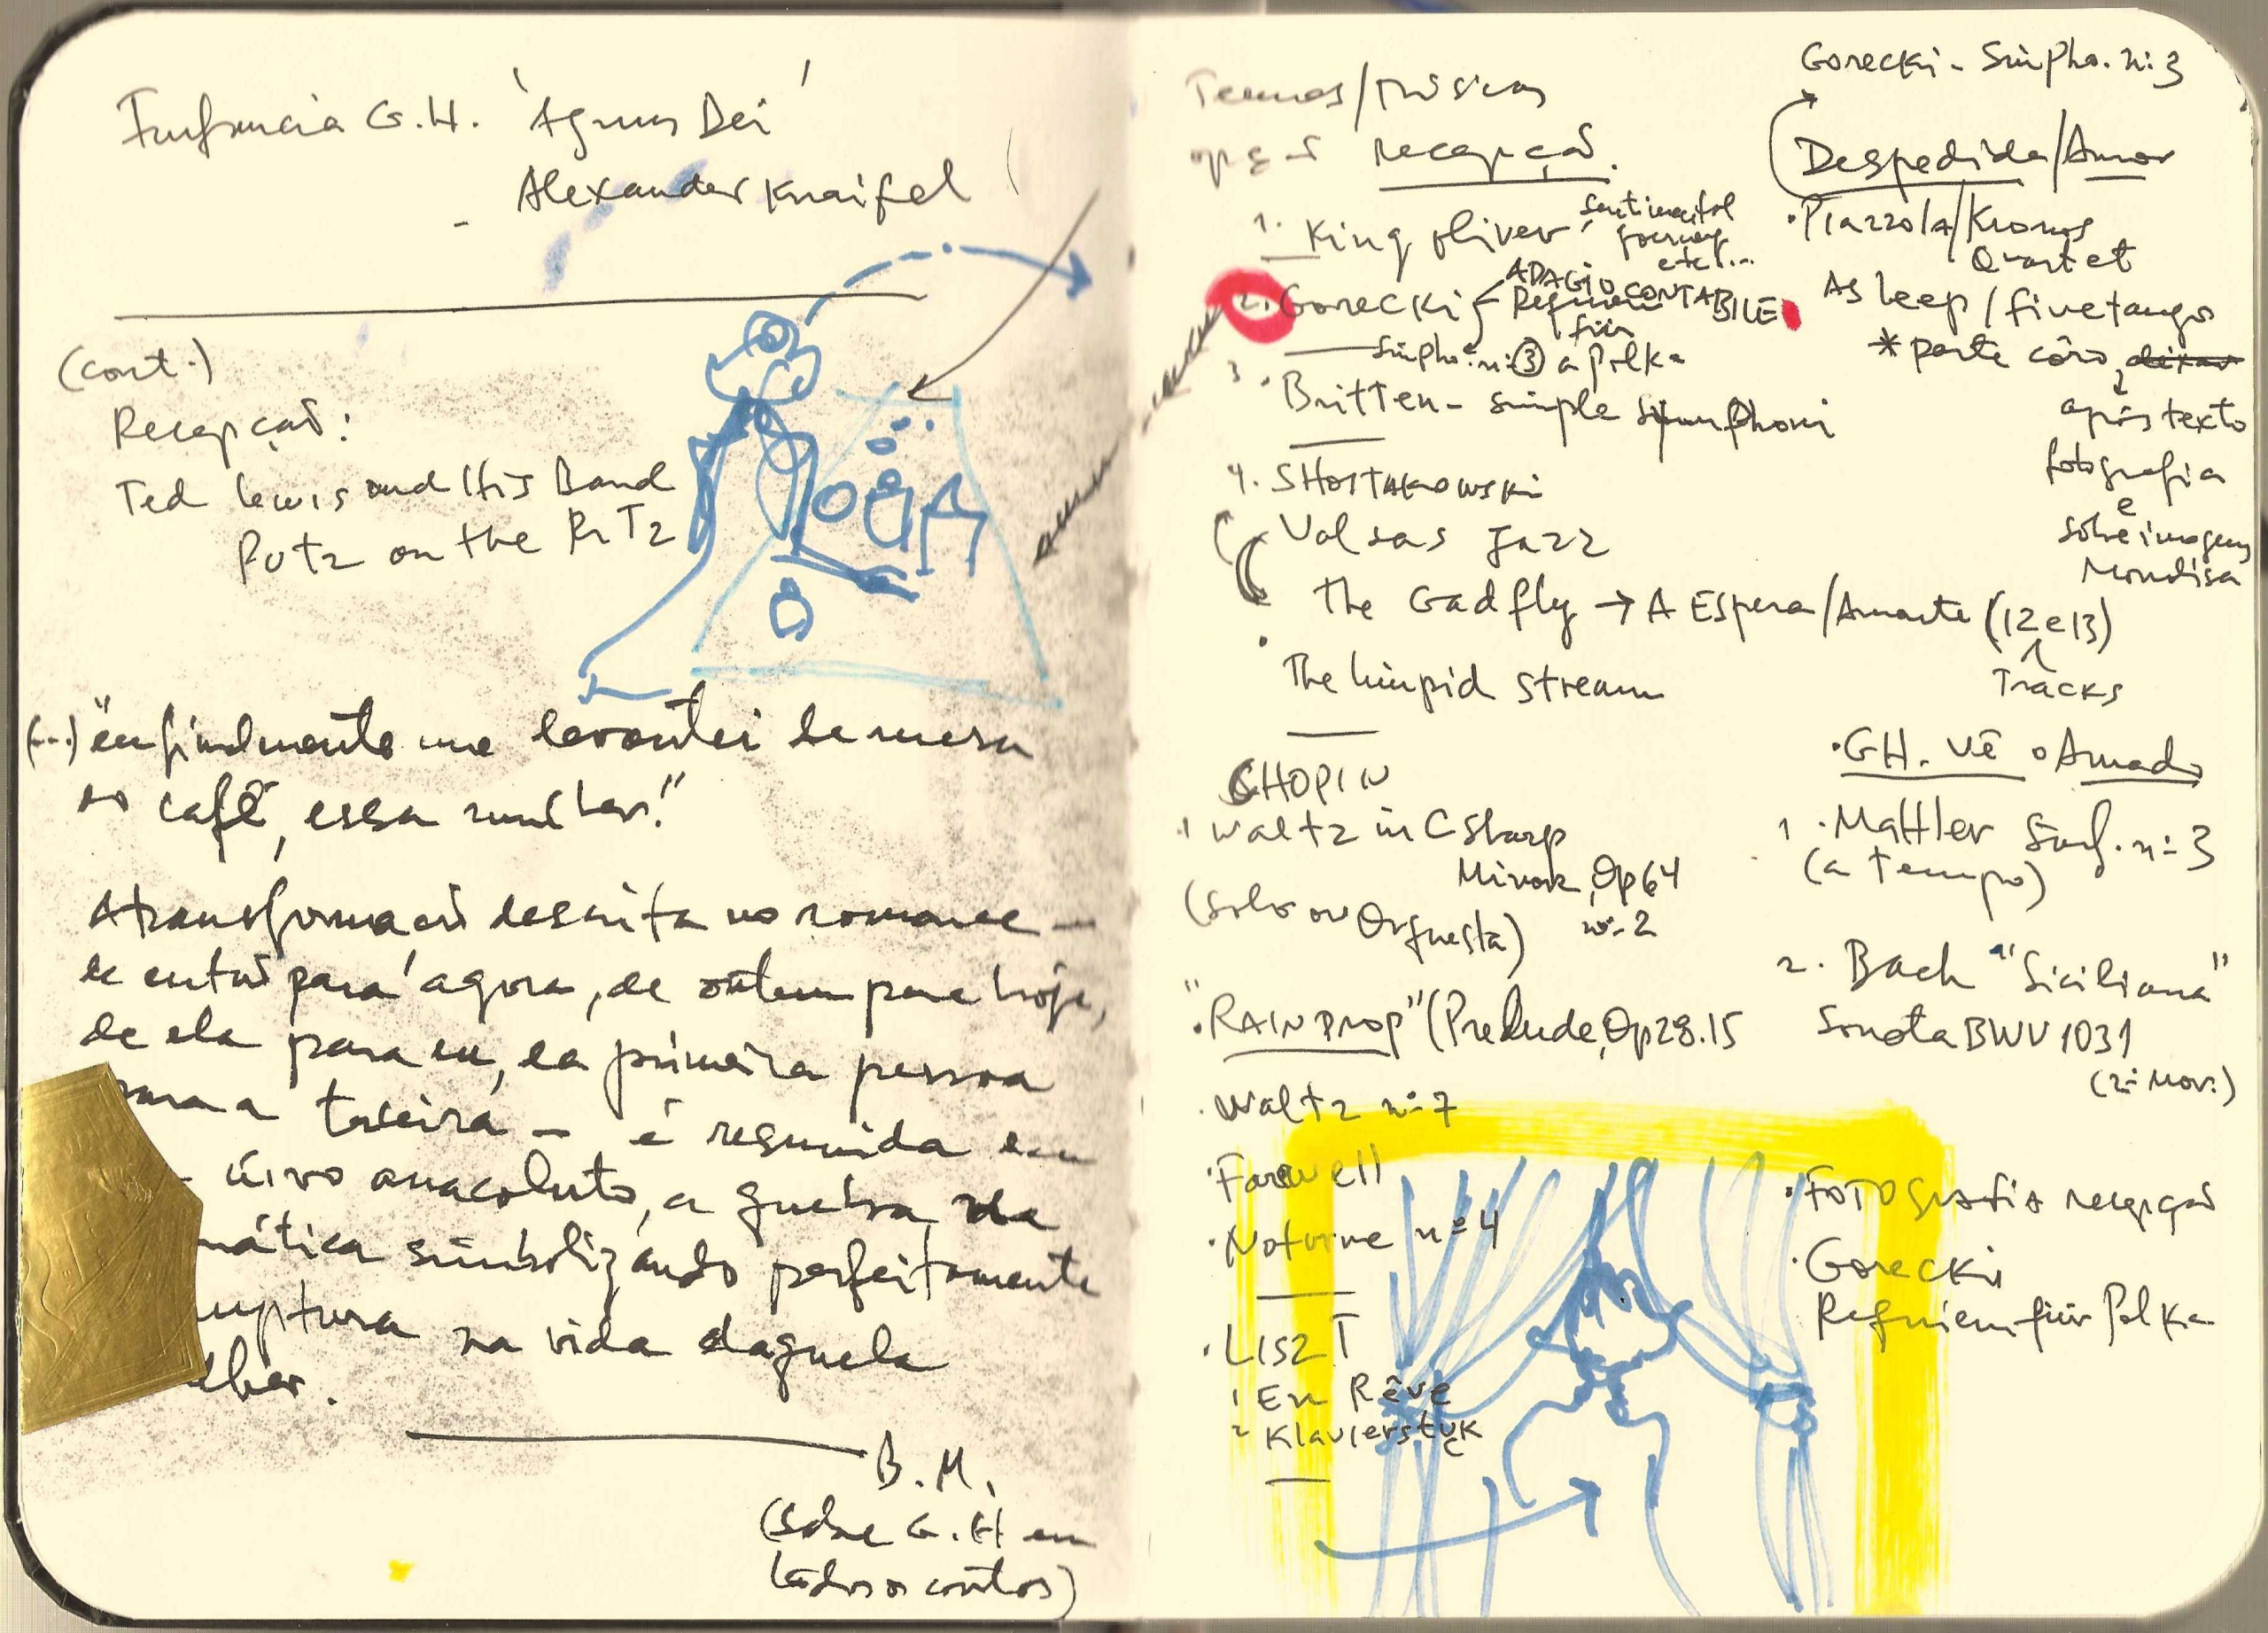 Infância G.H. 'Agnus Dei'
- Alexander Knaifel
(cont.)
Recepção:
Ted Lewis and His Band
Putz on the RiTz
(...) "eu finalmente me levantei da mesa
do café, essa mulher."
A transformação descrita no romance —
de então para agora, de ontem para hoje,
de ela para eu, da primeira pessoa
para a terceira — é resumida em
ivo anacoluto, a quebra da
mática simbolizando perfeitamente
ruptura na vida daquela
lher.
B.M.
(sobre G.H em
todos os contos)
Temas/Músicas
opç s recepção.
1. King Oliver sentimental
journey
etc...
2. Gorecki ADAGIO CONTABILE
Requiem
für
Sinpho. nº 3 a Polka
3. Britten - simple symphoni
4. SHostakowski
Valsas Jazz
The Gadfly → A Espera/Amante (12 e 13)
Tracks
The limpid stream
CHOPIN
1 Waltz in C Sharp
Minor, Op 64
nº 2
(solo ou Orquesta)
. "RAINDROP" (Prelude, Op 28.15
. Waltz nº 7
. Farewell
. Noturne nº 4
. LISZT
1 En Rêve
2 Klavierstuck
Gorecki - Sinpho. nº 3
Despedida/Amor
. Piazzola/Kronos
Quartet
Asleep/five tango
* parte côro, deixar
após texto
fotografia
e
sobre imagens
Mondisa
. GH. vê o Amado
1. Mahller Sinf. nº 3
(a tempo)
2. Bach "Siciliana"
Sonata BWV 1031
(2º Mov.)
. FOTOgrafia recepção
. Gorecki
Requiem für Polka